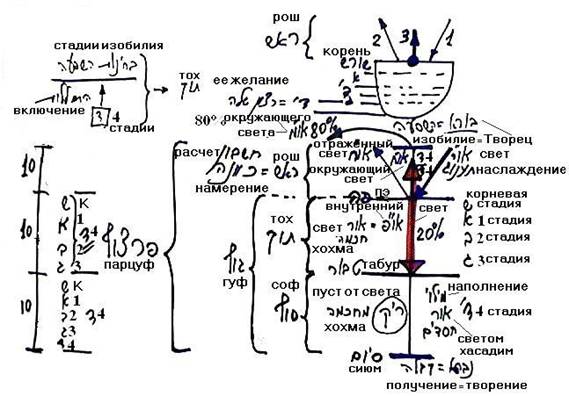 рош
ראש
2
3
1
корень
שורש
א
ב
ג
ד
стадии изобилия
בחינות השפעה
включение
3 4
стадии
тох
תוך
ее желание
80% окружающего
света
או"מ 80%
изобилие=Творец
отраженный
свет
окружающий
свет
או"מ
3 4
אור
свет
наслаждение
תענוג
расчет
חשבון
рош
ראש = כוונה
намерение
пэ
פה
корневая
стадия
ש
א 1 стадия
ב 2 стадия
ג 3 стадия
тох
תוך
внутренний
свет
או"פ = אור
חכמה
хохма
свет
20%
гуф
גוף
парцуф
פרצוף
табур
טבור
соф
סוף
пуст от света
ריק
מחכמה
хохма
наполнение
מילוי
ד' 4 стадия
3
אור
светом
חסדים
хасадим
сиюм
סיום
получение=творение
10
10
10
ש К
א 1
ב 2
ג 3
ש К
א 1
ב 2 ד' 3 4
ג 3
4